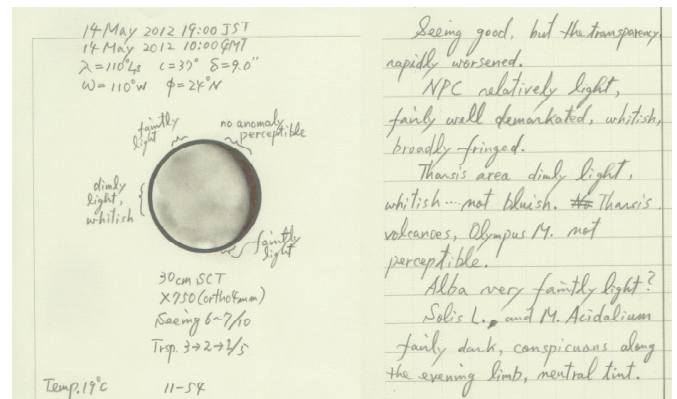 14 May 2012 19:00 JST
14 May 2012 10:00 GMT
λ=110°Ls ι=37° δ=9.0"
ω=110°W φ=24°N
faintly
light
no anomaly
perceptible
dimly
light,
whitish
faintly
light
30cm SCT
×750 (ortho4mm)
Seeing 6~7/10
Trsp. 3→2→1/5
Temp. 19°C 11-54
Seeing good, but the transparency
rapidly worsened.
NPC relatively light,
fairly well demarkated, whitish,
broadly fringed.
Tharsis area dimly light,
whitish....not bluish. Tharsis
volcanoes, Olympus M. not
perceptible.
Alba very faintly light?
Solis L., and M. Acidalium
fairly dark, conspicuous along
the evening limb, neutral tint.